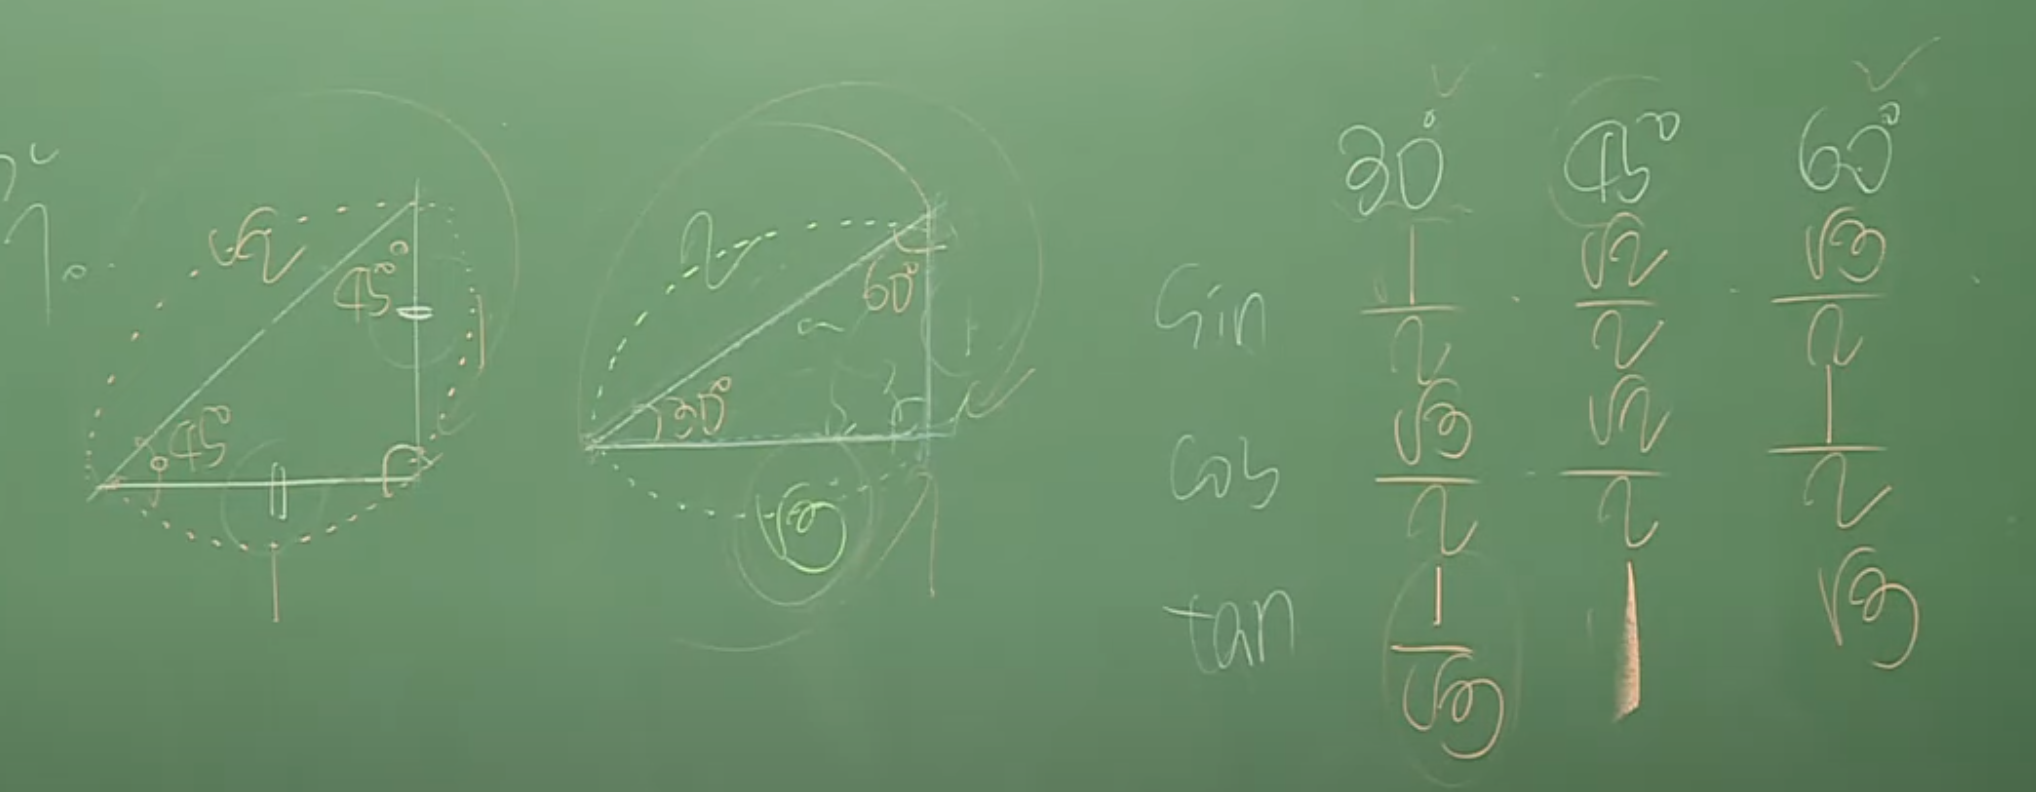 √2
45°
1
45°
1
2
60°
1
30°
√3
30° 45° 60°
sin 1/2 √2/2 √3/2
cos √3/2 √2/2 1/2
tan 1/√3 1 √3